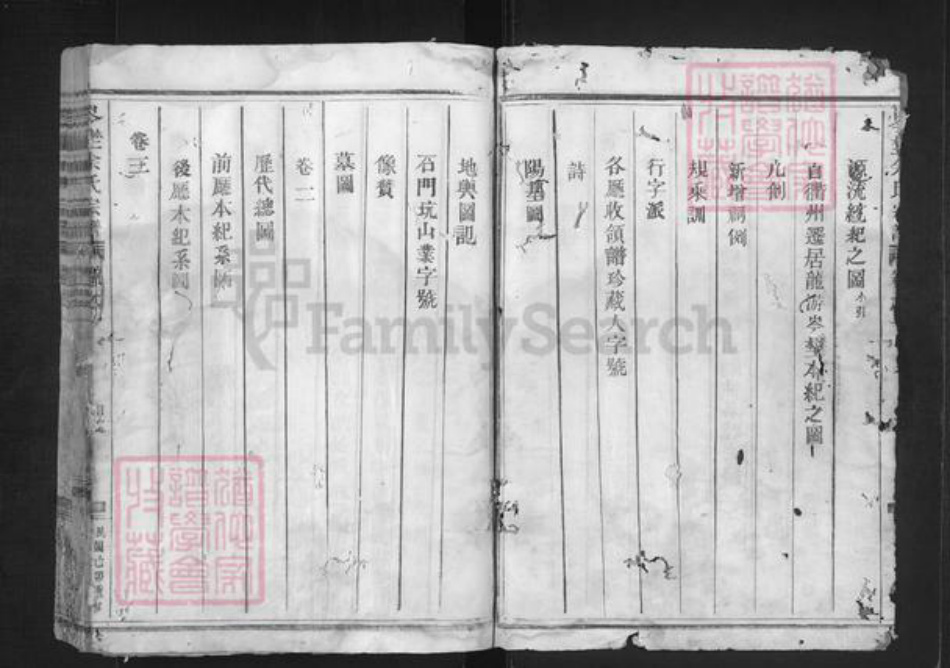 源流統紀之圖小引
自衢州遷居龍游岑㘰本紀之圖
凡例
新增 例
規家訓
行字派
各廳收領譜珍藏人字號
詩
陽基圖
地輿圖記
石門坑山業字號
像贊
墓圖
卷二
歷代總圖
前廳本紀系圖
後廳本紀系圖
卷三
FamilySearch